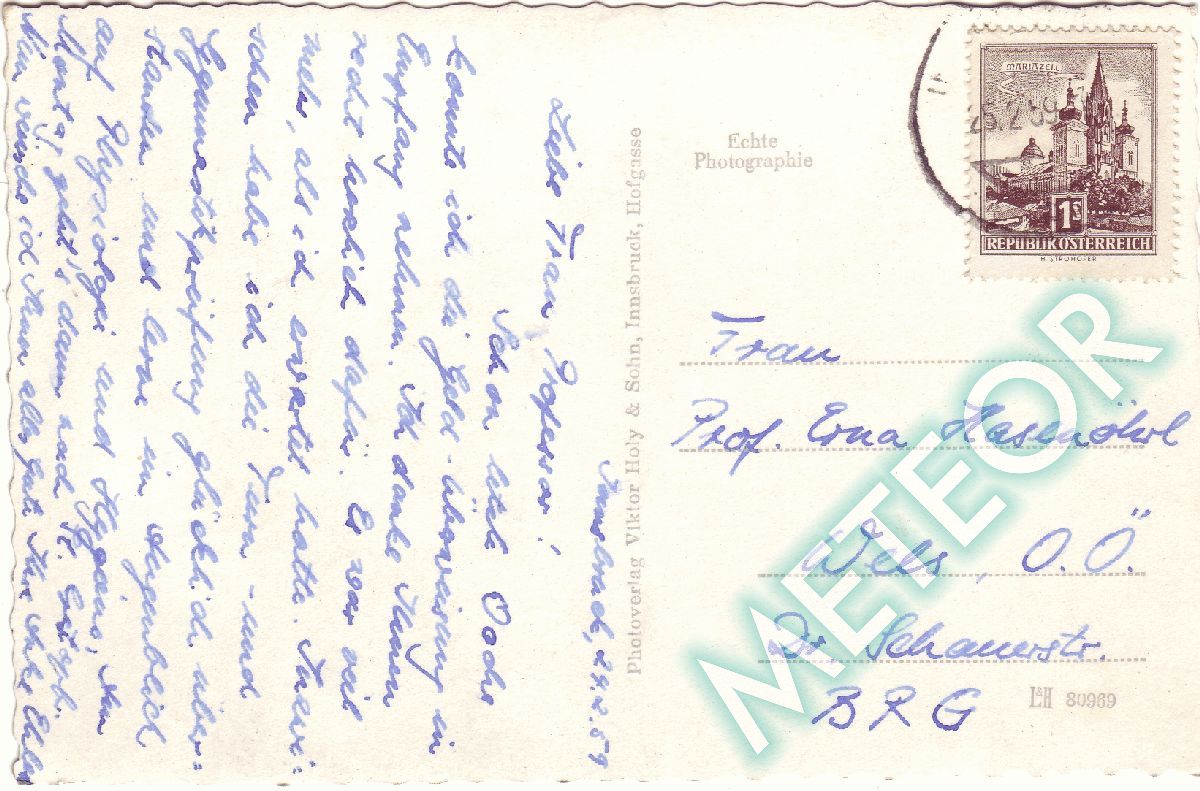 Innsbruck, 24.2.59
Liebe Frau Professor!
Schon letzte Woche
konnte ich die Geld-überweisung in
Empfang nehmen. Ich danke Ihnen
recht herzlich dafür. Es war viel
mehr, als ich erwartet hatte. Inzwi-
schen habe ich die Turn- und
Gymnastikprüfung glücklich über-
standen und lerne im Augenblick
auf Physiologie und Hygiene, Am
Montag geht's dann nach St.
Nun wünsche ich Ihnen alles gute Ihre
Photoverlag Viktor Holy & Sohn, Innsbruck, Hofgasse
Echte
Photographie
MARIAZELL
26.2.59
1S
REPUBLIK ÖSTERREICH
Frau
Prof. Erna Hasenöhrl
Wels, O.Ö.
Dr. Schauerstr.
BRG
L&H 80969
METEOR